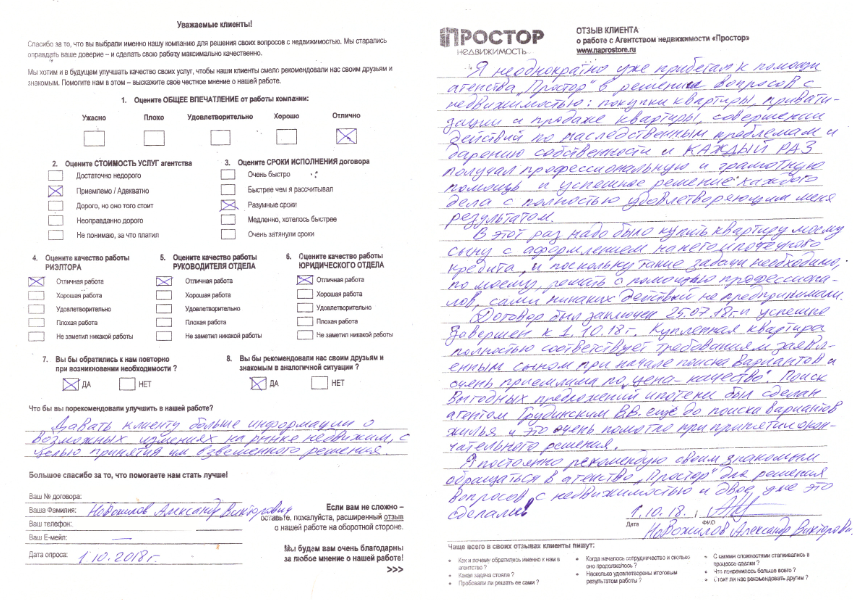 Уважаемые клиенты!
Спасибо за то, что вы выбрали именно нашу компанию для решения своих вопросов с недвижимостью. Мы старались
оправдать ваше доверие – и сделать свою работу максимально качественно.
Мы хотим и в будущем улучшать качество своих услуг, чтобы наши клиенты смело рекомендовали нас своим друзьям и
знакомым. Помогите нам в этом – выскажите свое честное мнение о нашей работе.
1. Оцените ОБЩЕЕ ВПЕЧАТЛЕНИЕ от работы компании:
Ужасно Плохо Удовлетворительно Хорошо Отлично
2. Оцените СТОИМОСТЬ УСЛУГ агентства
Достаточно недорого
Приемлемо / Адекватно
Дорого, но оно того стоит
Неоправданно дорого
Не понимаю, за что платил
3. Оцените СРОКИ ИСПОЛНЕНИЯ договора
Очень быстро
Быстрее чем я рассчитывал
Разумные сроки
Медленно, хотелось быстрее
Очень затянули сроки
4. Оцените качество работы
РИЭЛТОРА
Отличная работа
Хорошая работа
Удовлетворительно
Плохая работа
Не заметил никакой работы
5. Оцените качество работы
РУКОВОДИТЕЛЯ ОТДЕЛА
Отличная работа
Хорошая работа
Удовлетворительно
Плохая работа
Не заметил никакой работы
6. Оцените качество работы
ЮРИДИЧЕСКОГО ОТДЕЛА
Отличная работа
Хорошая работа
Удовлетворительно
Плохая работа
Не заметил никакой работы
7. Вы бы обратились к нам повторно
при возникновении необходимости ?
ДА НЕТ
8. Вы бы рекомендовали нас своим друзьям и
знакомым в аналогичной ситуации ?
ДА НЕТ
Что бы вы порекомендовали улучшить в нашей работе?
Давать клиенту больше информации о
возможных изменениях на рынке недвижим. с
целью принятия им взвешенного решения.
Большое спасибо за то, что помогаете нам стать лучше!
Ваш № договора:
Ваша Фамилия: Новожилов Александр Викторович
Ваш телефон:
Ваш E-мейл: —
Дата опроса: 1.10.2018г.
Если вам не сложно –
оставьте, пожалуйста, расширенный отзыв
о нашей работе на оборотной стороне.
Мы будем вам очень благодарны
за любое мнение о нашей работе!
>>>
ПРОСТОР
НЕДВИЖИМОСТЬ
ОТЗЫВ КЛИЕНТА
о работе с Агентством недвижимости «Простор»
www.naprostore.ru
Я неоднократно уже прибегал к помощи
агенства „Простор" в решении вопросов с
недвижимостью: покупки квартиры, привати-
зации и продаже квартиры, совершении
действий по наследственным проблемам и
дарению собственности и КАЖДЫЙ РАЗ
получал профессиональную и грамотную
помощь и успешное решение каждого
дела с полностью удовлетворяющим меня
результатом.
В этот раз надо было купить квартиру моему
сыну с оформлением на него ипотечного
кредита, и поскольку такие задачи необходимо,
по моему, решать с помощью профессиона-
лов, сами никаких действий не предпринимали.
Договор был заключен 25.07.18г и успешно
завершен к 1.10.18г. Купленная квартира
полностью соответствует требованиям заявл-
енным сыном при начале поиска вариантов и
очень приемлима по „цена-качество". Поиск
выгодных предложений ипотеки был сделан
агентом В.В. еще до поиска вариантов
жилья и это очень помогло при принятии окон-
чательного решения.
Я постоянно рекомендую своим знакомым
обращаться в агенство „Простор" для решения
вопросов с недвижимостью и двое уже это
сделали!
1.10.18.
Дата ФИО
Новожилов Александр Викторович
Чаще всего в своих отзывах клиенты пишут:
• Как и почему обратились именно к нам в
агентство ?
• Какая задача стояла ?
• Пробовали ли решать ее сами ?
• Когда началось сотрудничество и сколько
оно продолжалось ?
• Насколько удовлетворены итоговым
результатом работы ?
• С какими сложностями сталкивались в
процессе сделки ?
• Что понравилось больше всего ?
• Стоит ли нас рекомендовать другим ?